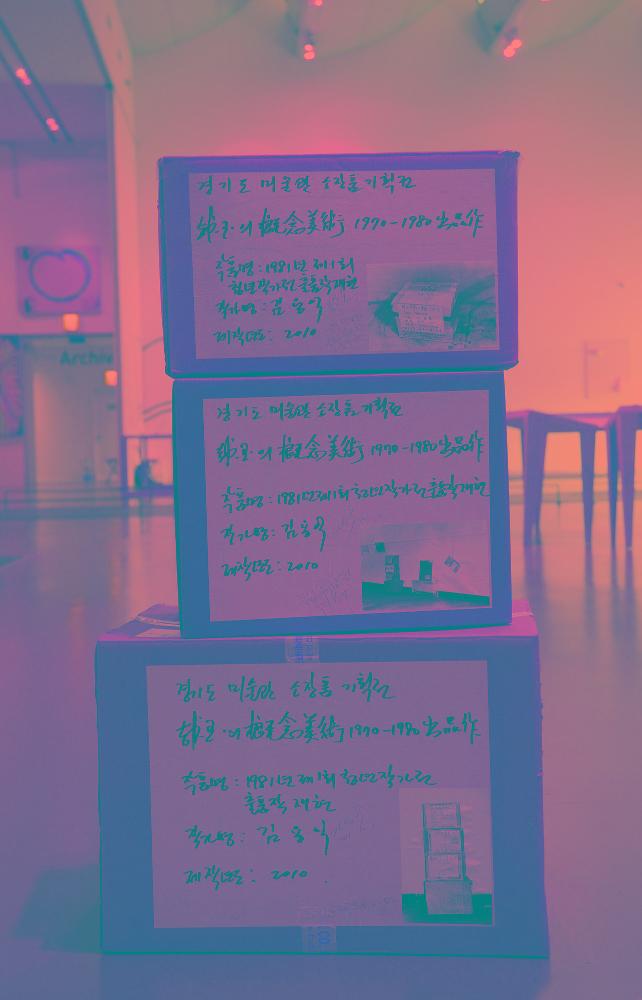 Archive
경기도 미술관 소장품 기획전
韓国의 槪念美術 1970-1980 出品作
작품명 : 1981년 제1회
청년작가전 출품작 재현
작가명 : 김용익
제작년도 : 2010
경기도 미술관 소장품 기획전
韓国의 槪念美術 1970-1980 出品作
작품명 : 1981년 제1회 청년작가전 출품작 재현
작가명 : 김용익
제작년도 : 2010
경기도 미술관 소장품 기획전
韓国의 槪念美術 1970-1980 出品作
작품명 : 1981년 제1회 청년작가전
출품작 재현
작가명 : 김용익
제작년도 : 2010